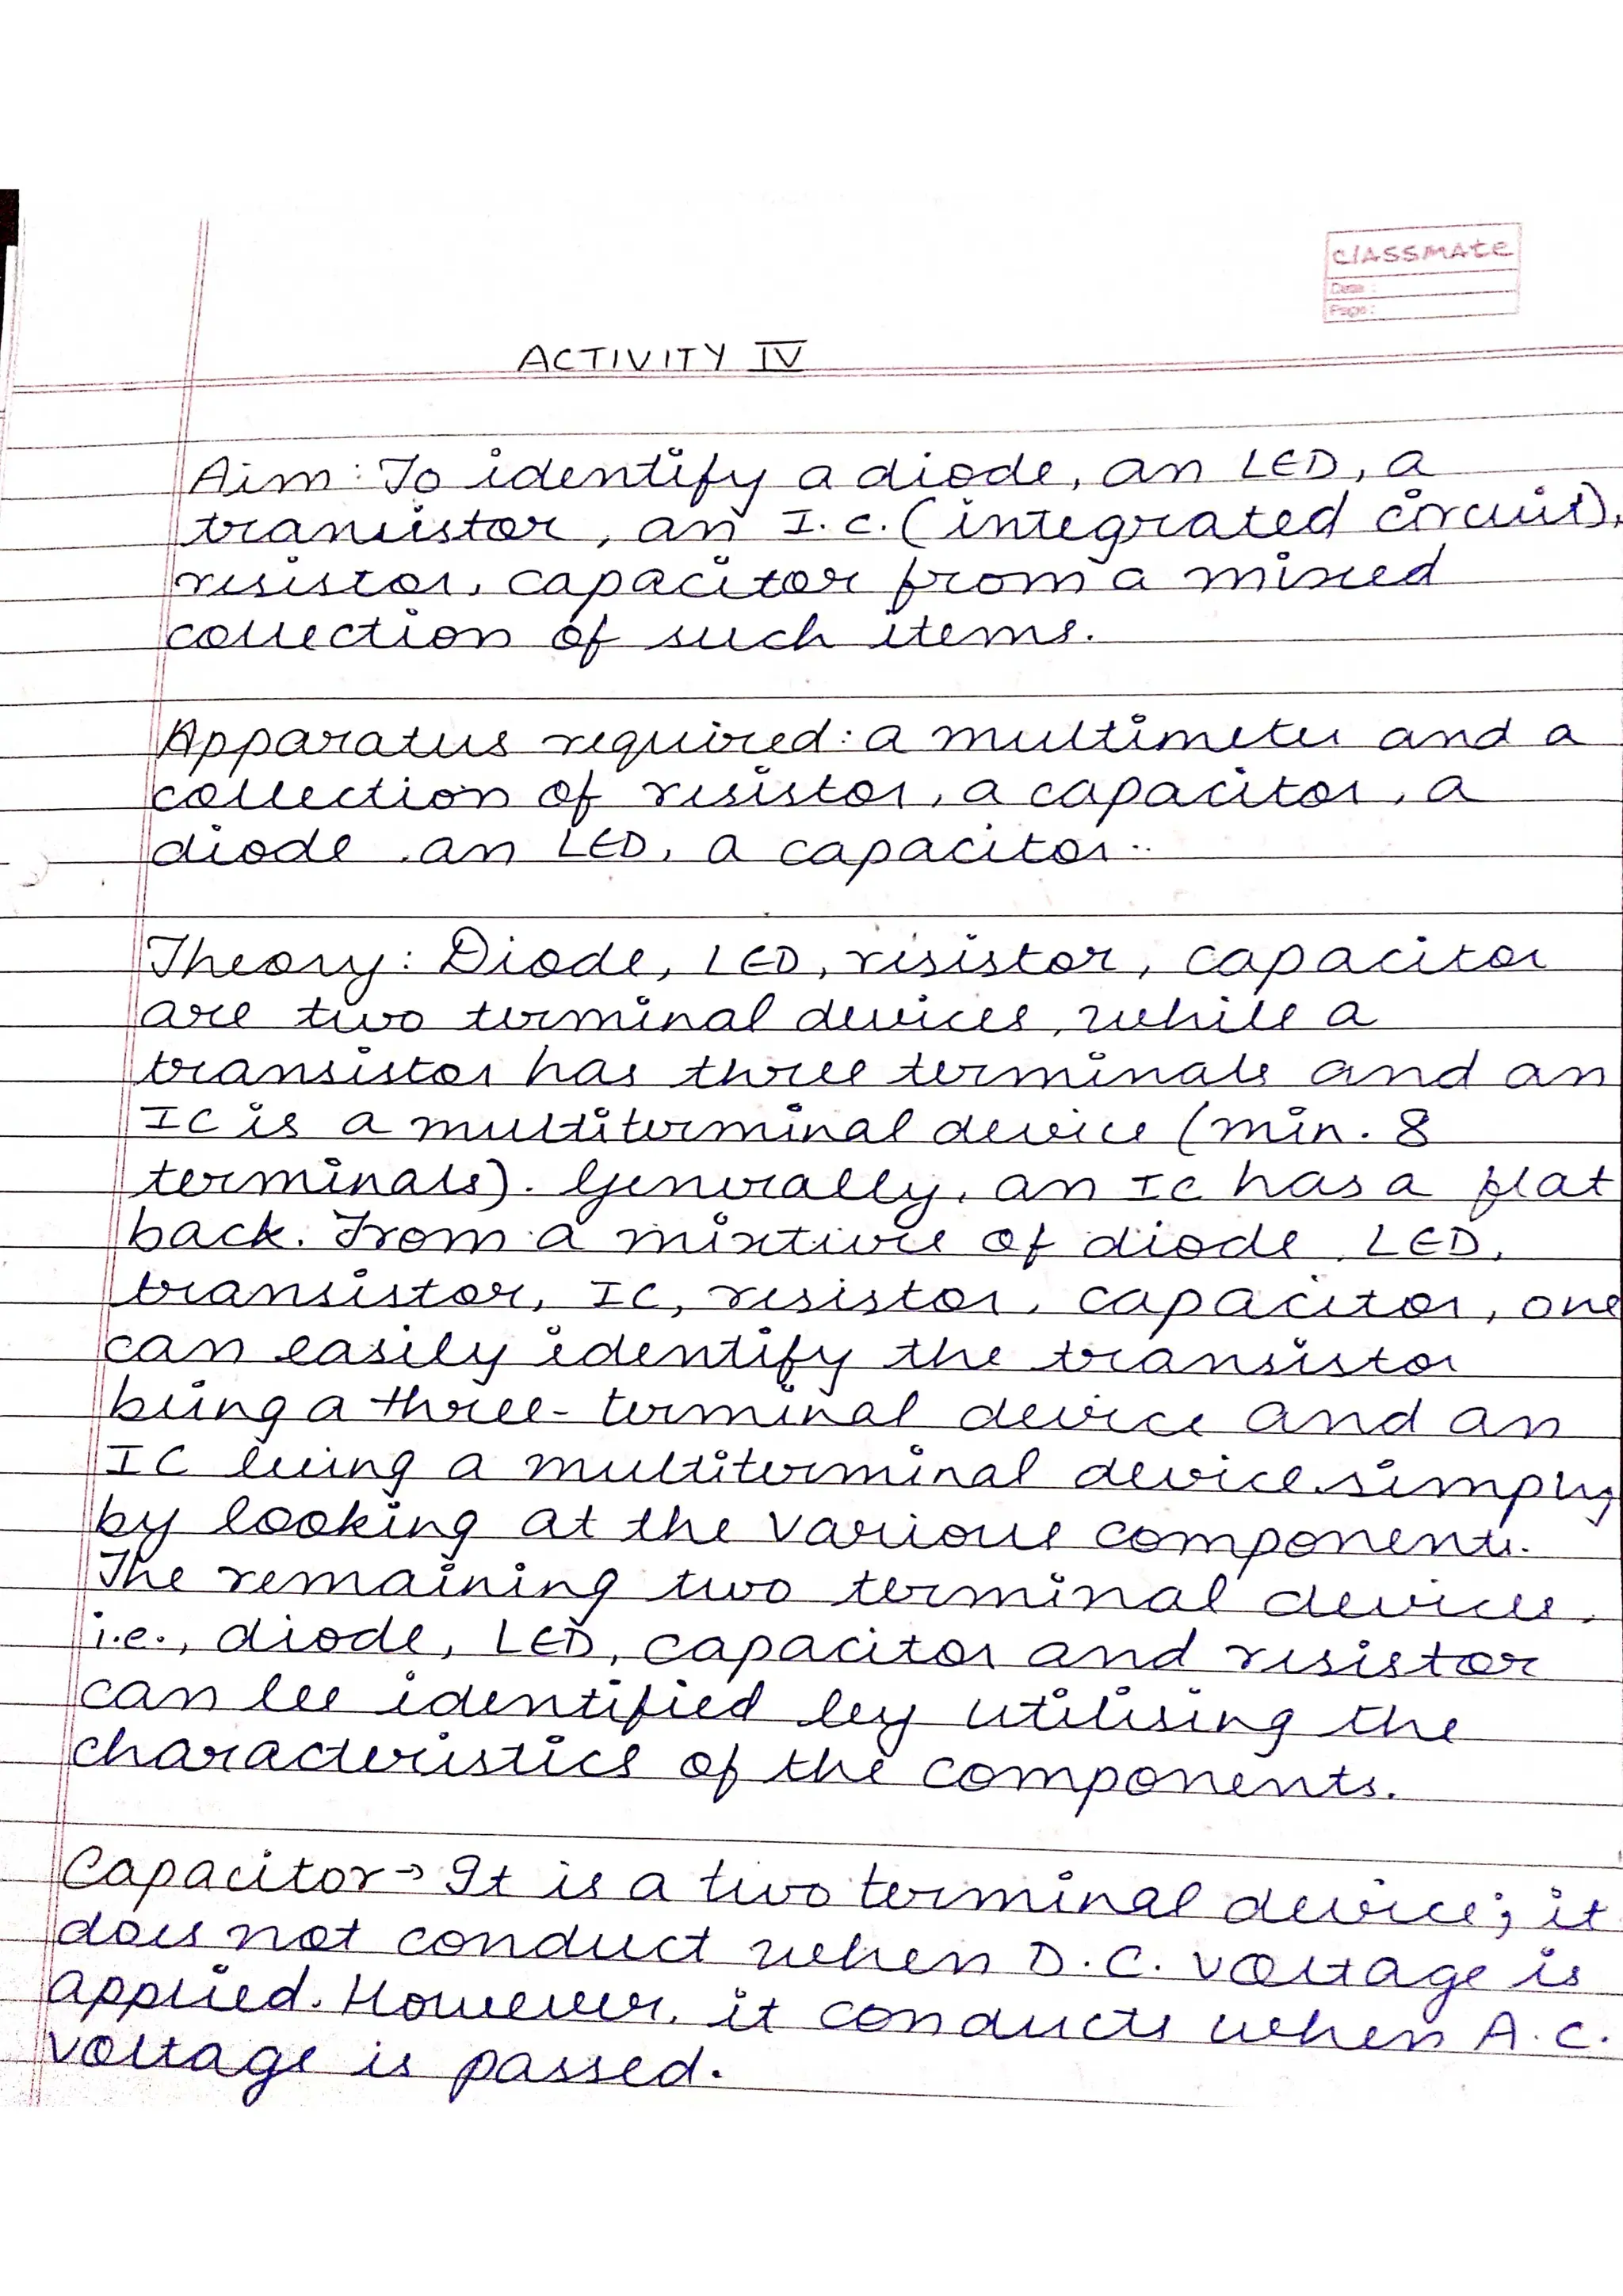 classmate
Date :
Page :
ACTIVITY IV
Aim: To identify a diode, an LED, a
transistor, an I.C. (integrated circuit),
resistor, capacitor from a mixed
collection of such items.
Apparatus required: a multimeter and a
collection of resistor, a capacitor, a
diode, an LED, a capacitor..
Theory: Diode, LED, risistor, capacitor
are two terminal devices, while a
transistor has three terminals and an
IC is a multiterminal device (min. 8
terminals). Generally, an IC has a flat
back. From a mixture of diode, LED,
transistor, IC, resistor, capacitor, one
can easily identify the transistor
being a three-terminal device and an
IC being a multiterminal device simply
by looking at the various components.
The remaining two terminal devices,
i.e., diode, LED, capacitor and resistor
can be identified by utilising the
characteristics of the components.
Capacitor → It is a two terminal device; it
does not conduct when D.C. voltage is
applied. However, it conducts when A.C.
voltage is passed.